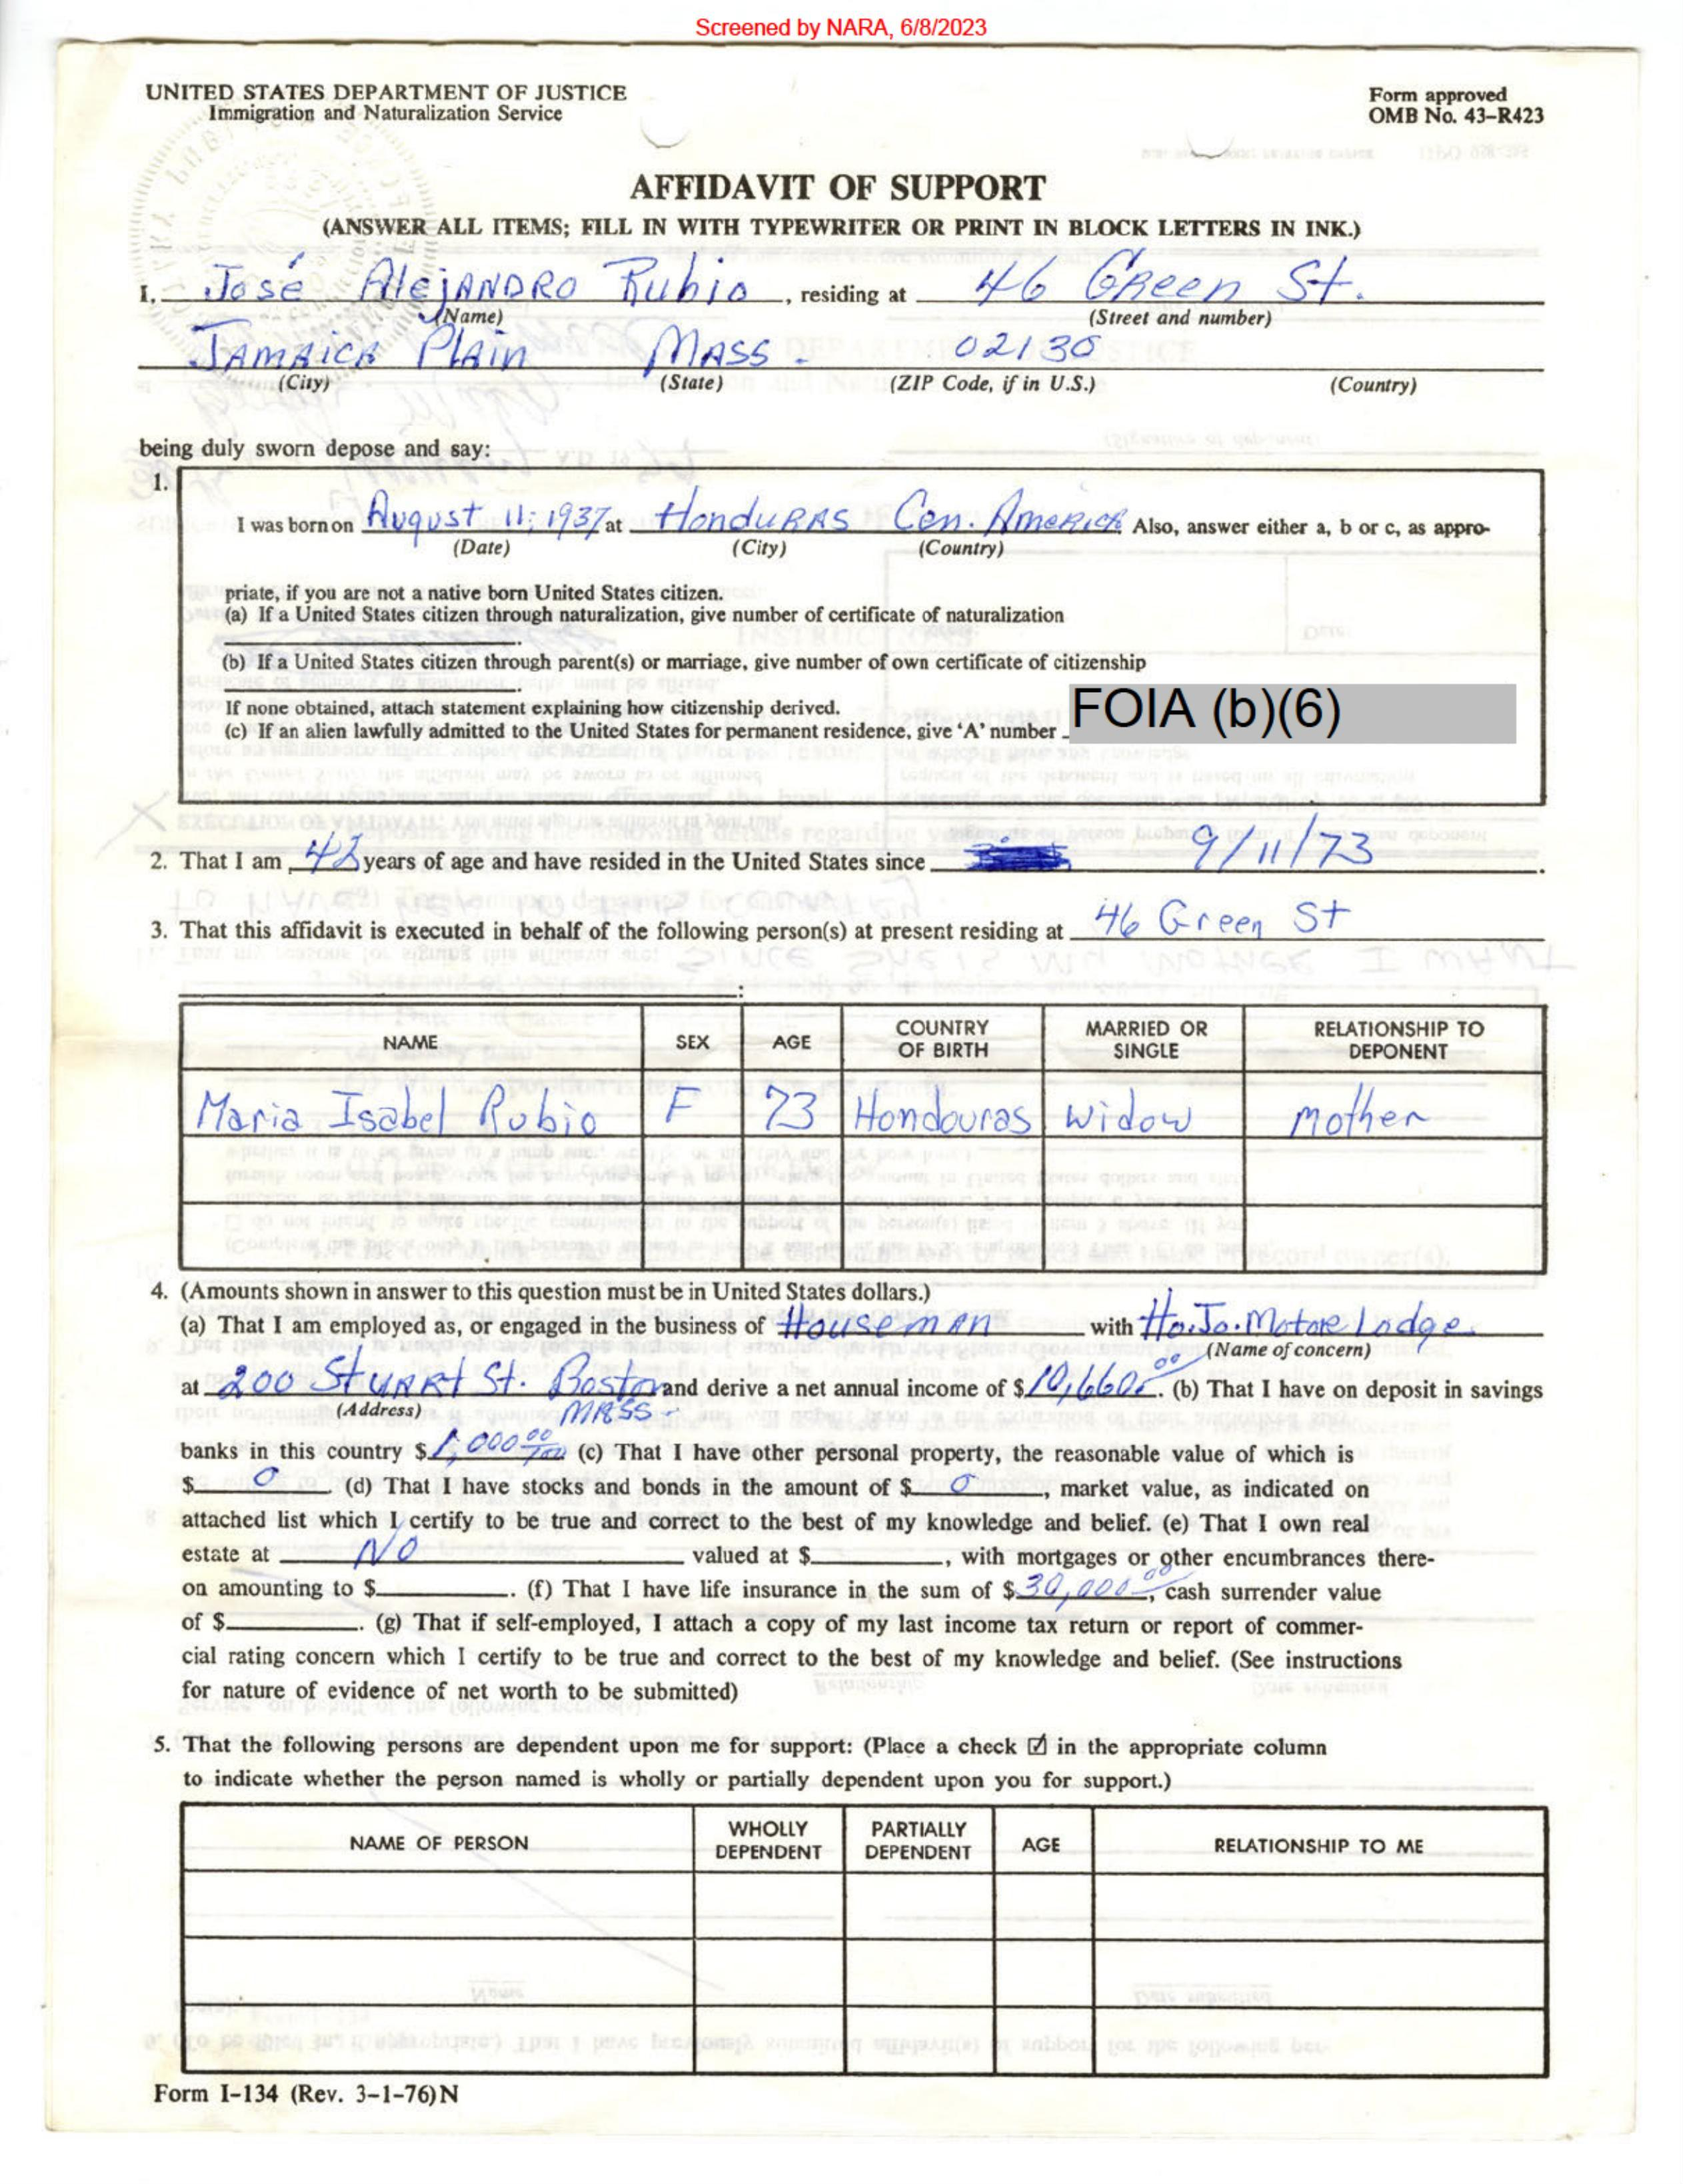 Screened by NARA, 6/8/2023
UNITED STATES DEPARTMENT OF JUSTICE
Immigration and Naturalization Service
Form approved
OMB No. 43-R423
AFFIDAVIT OF SUPPORT
(ANSWER ALL ITEMS; FILL IN WITH TYPEWRITER OR PRINT IN BLOCK LETTERS IN INK.)
I, José Alejandro Rubio, residing at 46 Green St.
(Name) (Street and number)
Jamaica Plain Mass - 02130
(City) (State) (ZIP Code, if in U.S.) (Country)
being duly sworn depose and say:
1.
I was born on August 11, 1937 at Honduras Cen. America. Also, answer either a, b or c, as appro-
(Date) (City) (Country)
priate, if you are not a native born United States citizen.
(a) If a United States citizen through naturalization, give number of certificate of naturalization
(b) If a United States citizen through parent(s) or marriage, give number of own certificate of citizenship
If none obtained, attach statement explaining how citizenship derived.
(c) If an alien lawfully admitted to the United States for permanent residence, give 'A' number FOIA (b)(6)
2. That I am 42 years of age and have resided in the United States since 9/11/73.
3. That this affidavit is executed in behalf of the following person(s) at present residing at 46 Green St
:
NAME SEX AGE COUNTRY OF BIRTH MARRIED OR SINGLE RELATIONSHIP TO DEPONENT
Maria Isabel Rubio F 73 Hondouras widow mother
4. (Amounts shown in answer to this question must be in United States dollars.)
(a) That I am employed as, or engaged in the business of Houseman with Ho.Jo. Motor Lodge
(Name of concern)
at 200 Stuart St. Boston and derive a net annual income of $10,660.00. (b) That I have on deposit in savings
(Address) Mass -
banks in this country $1,000 00/100 (c) That I have other personal property, the reasonable value of which is
$ 0 . (d) That I have stocks and bonds in the amount of $ 0 , market value, as indicated on
attached list which I certify to be true and correct to the best of my knowledge and belief. (e) That I own real
estate at NO valued at $ , with mortgages or other encumbrances there-
on amounting to $ . (f) That I have life insurance in the sum of $30,000.00, cash surrender value
of $ . (g) That if self-employed, I attach a copy of my last income tax return or report of commer-
cial rating concern which I certify to be true and correct to the best of my knowledge and belief. (See instructions
for nature of evidence of net worth to be submitted)
5. That the following persons are dependent upon me for support: (Place a check ☑ in the appropriate column
to indicate whether the person named is wholly or partially dependent upon you for support.)
NAME OF PERSON WHOLLY DEPENDENT PARTIALLY DEPENDENT AGE RELATIONSHIP TO ME
Form I-134 (Rev. 3-1-76)N